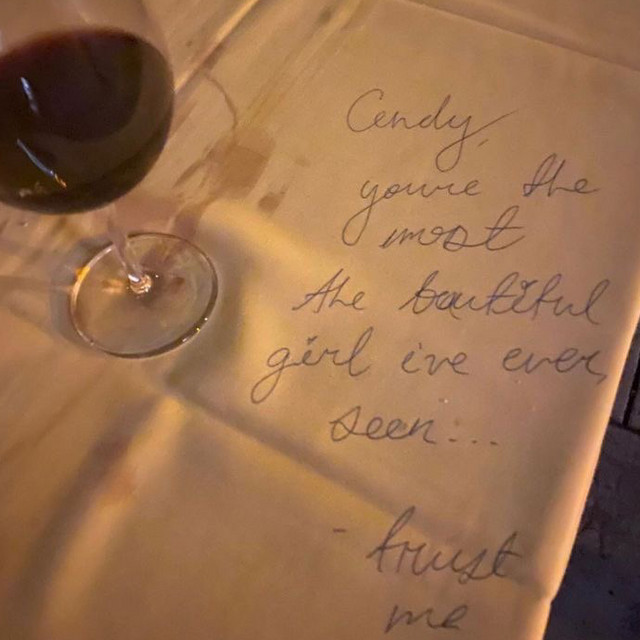 Cendy,
youre the
most
the bautiful
girl i've ever,
seen...
- trust
me